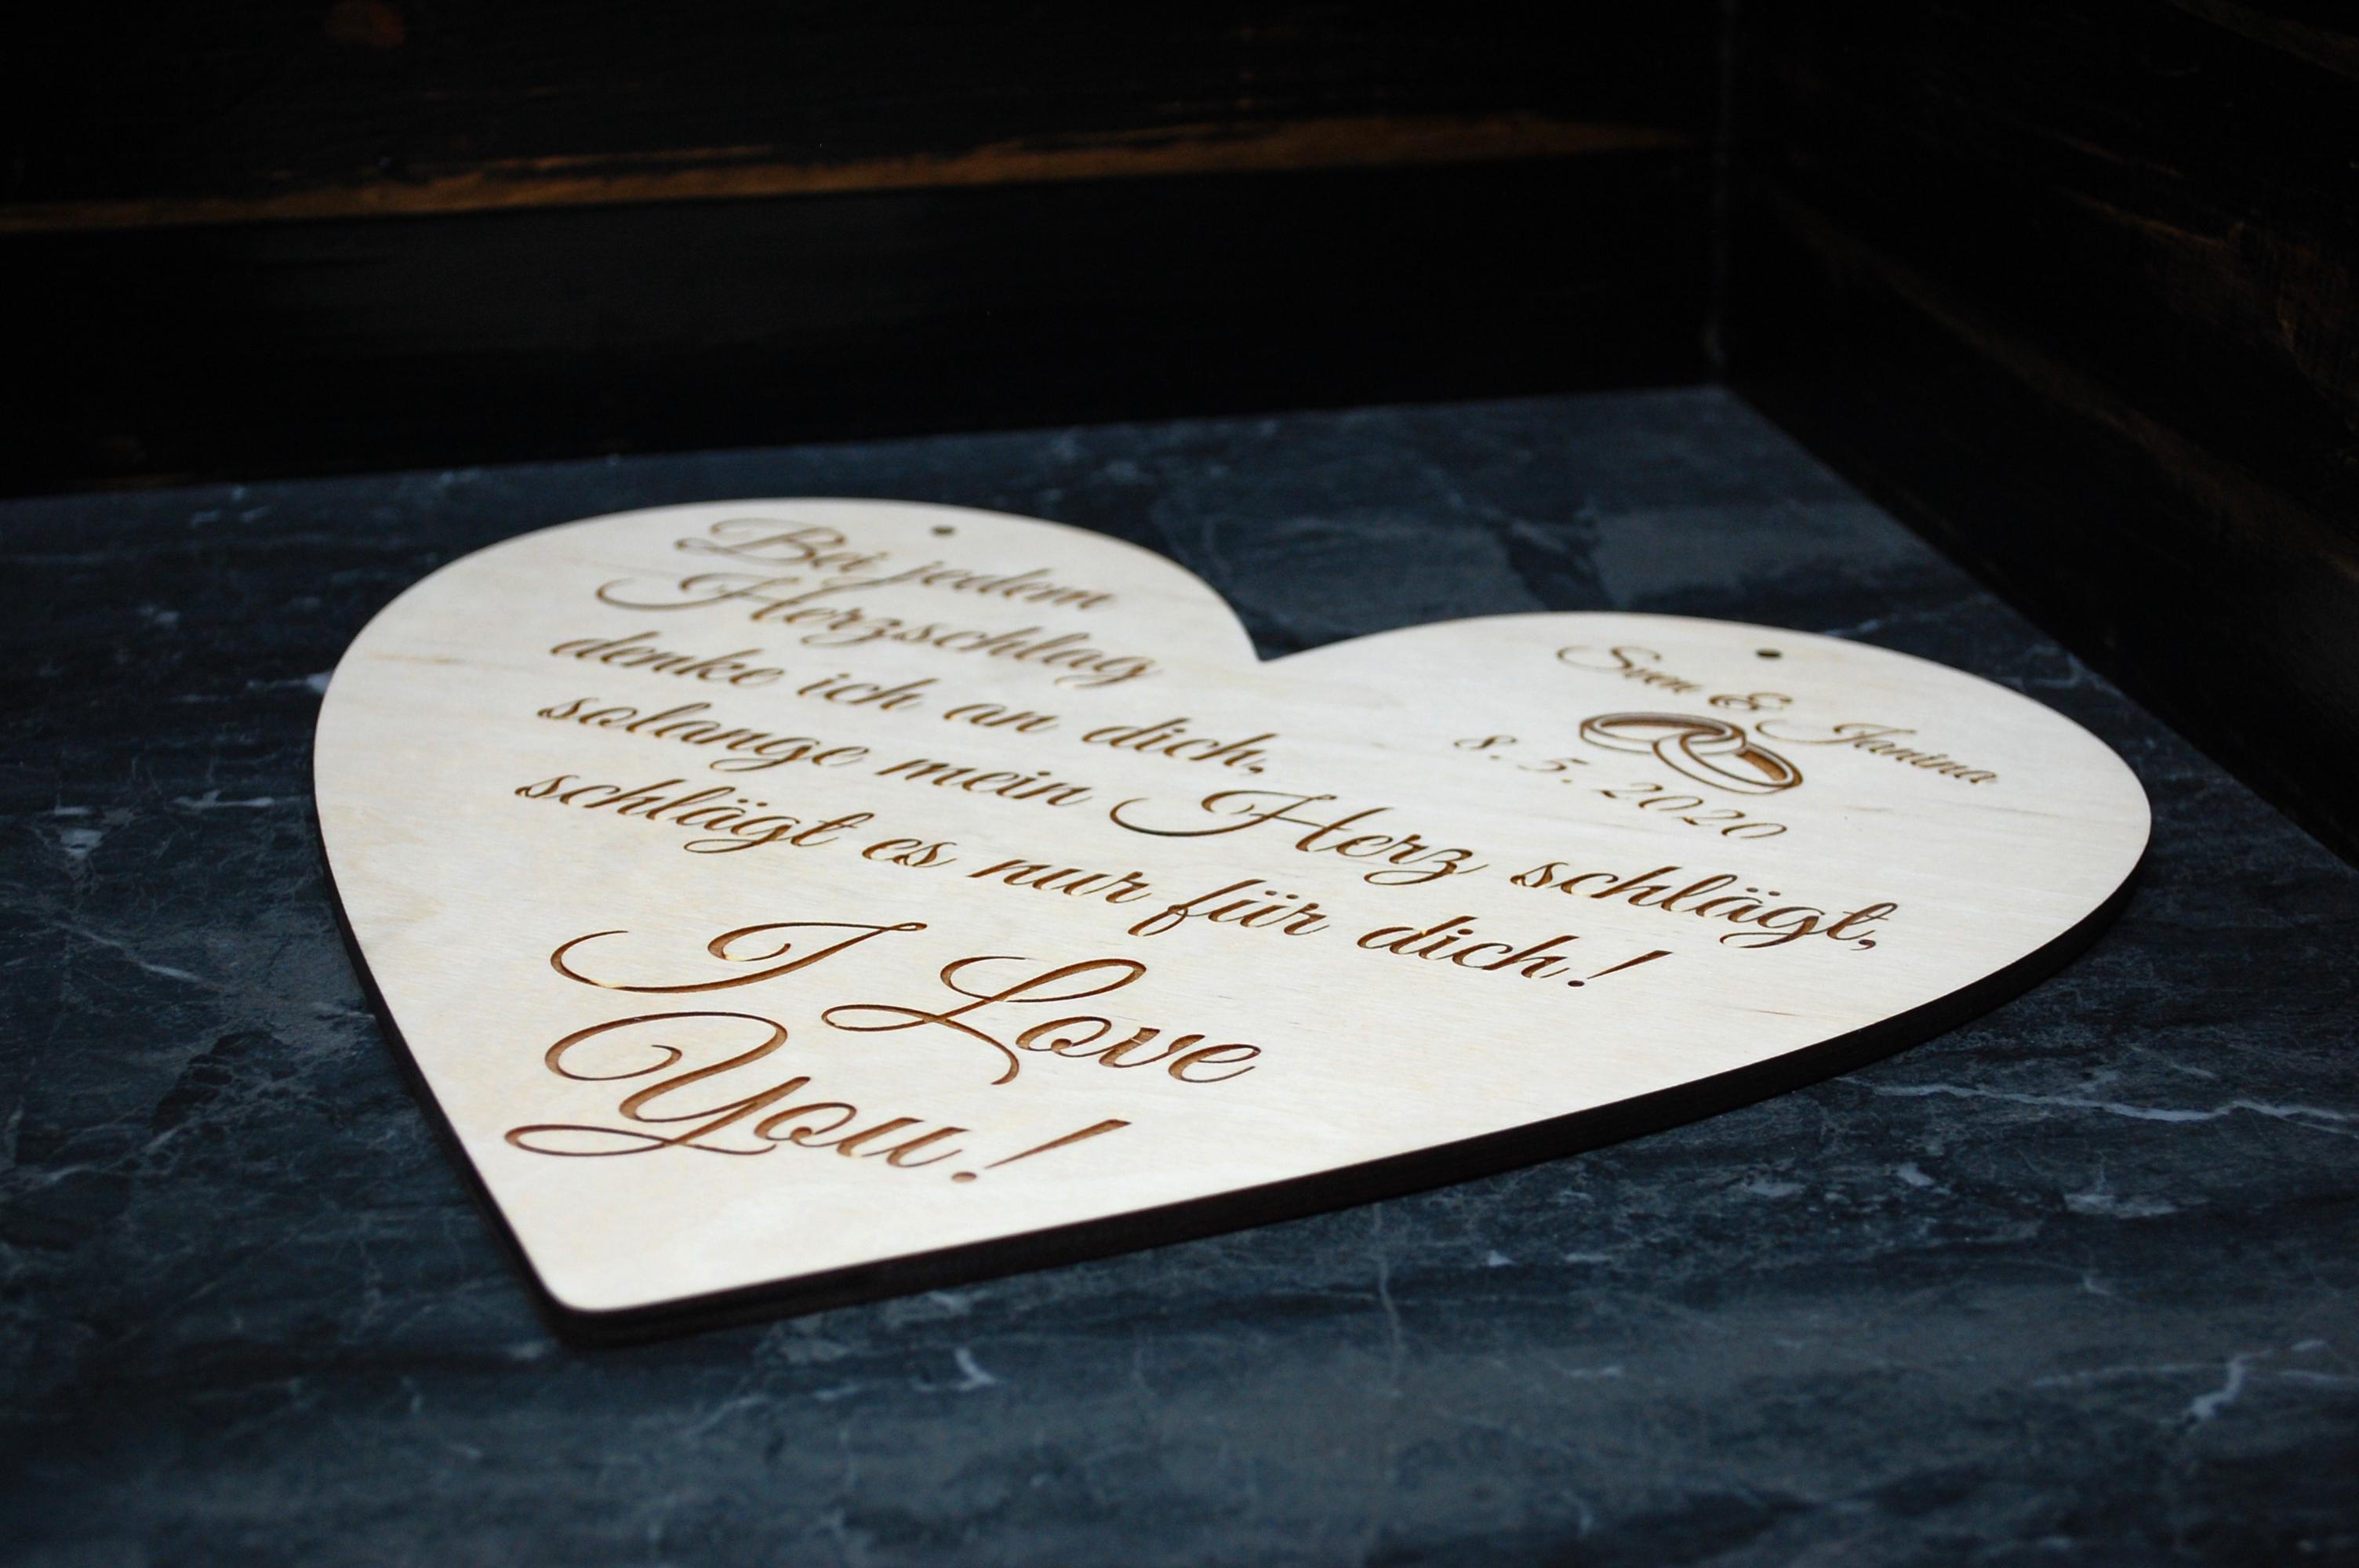 Bei jedem
Herzschlag
denke ich an dich,
solange mein Herz schlägt,
schlägt es nur für dich!
I Love
You!
Sven & Janina
8. 5. 2020